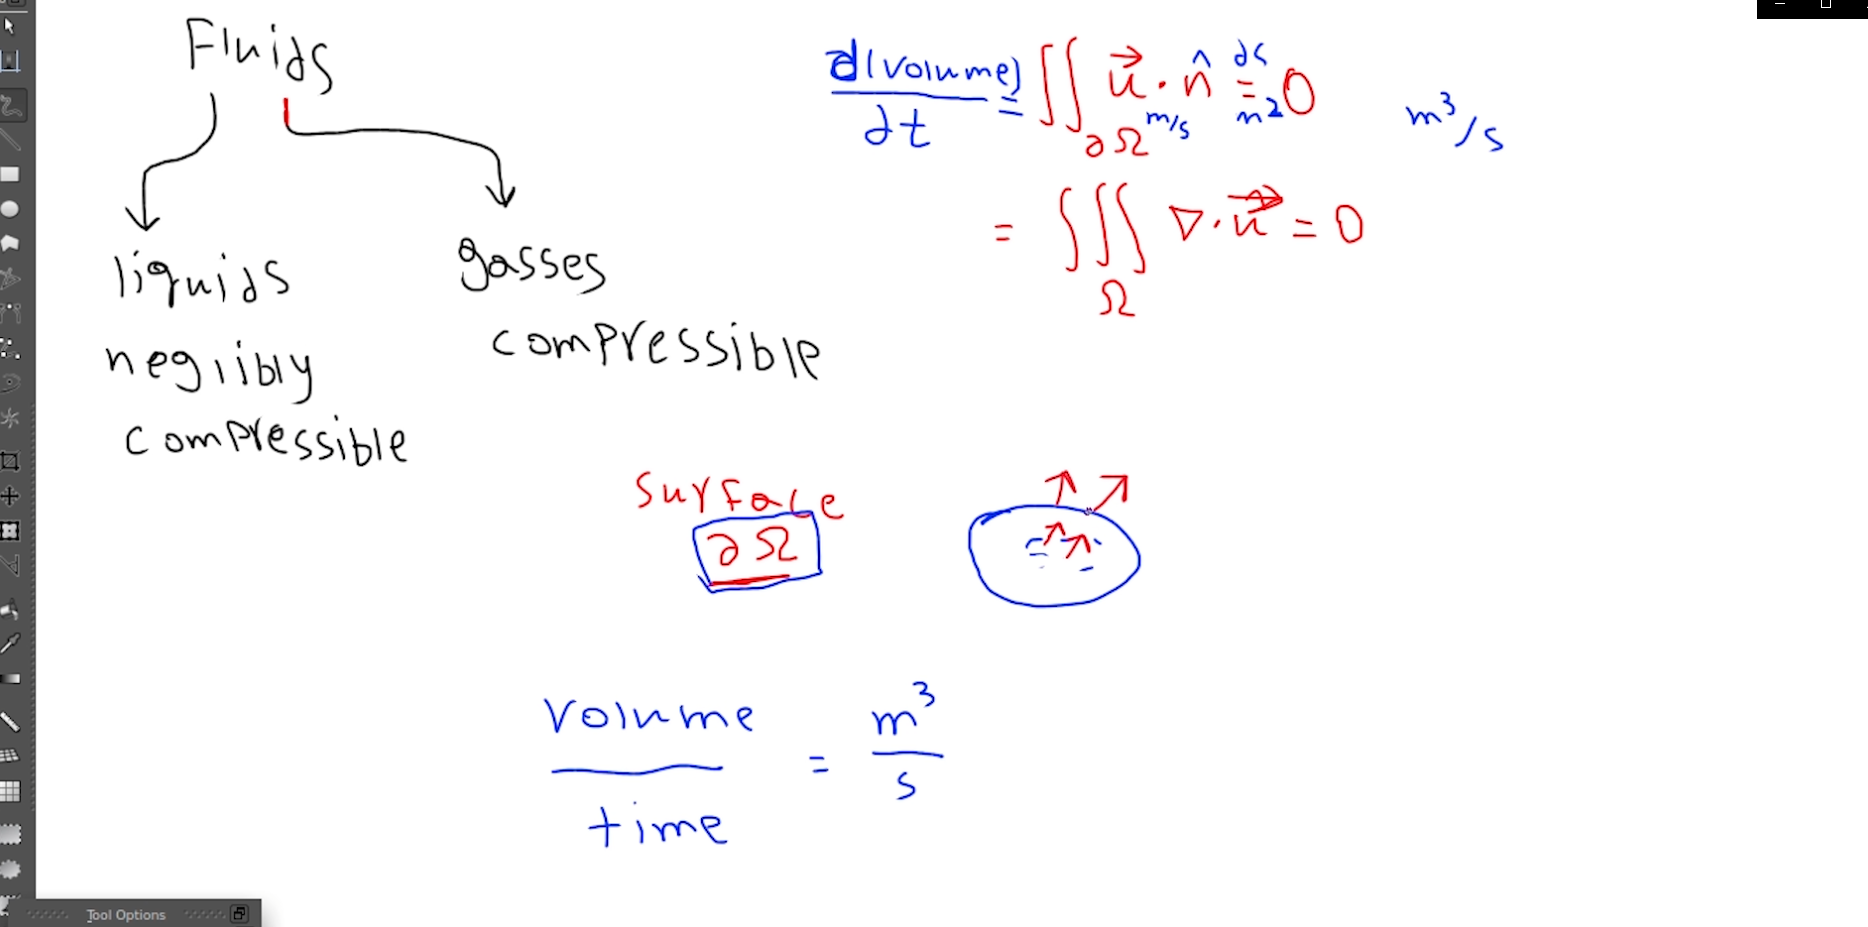 Fluids
liquids
negiibly
compressible
gasses
compressible
d(volume)/dt = ∬ u⃗ · n̂ ds = 0
∂Ω m/s m² m³/s
= ∭ ∇ · u⃗ = 0
Ω
surface
∂Ω
volume/time = m³/s
Tool Options